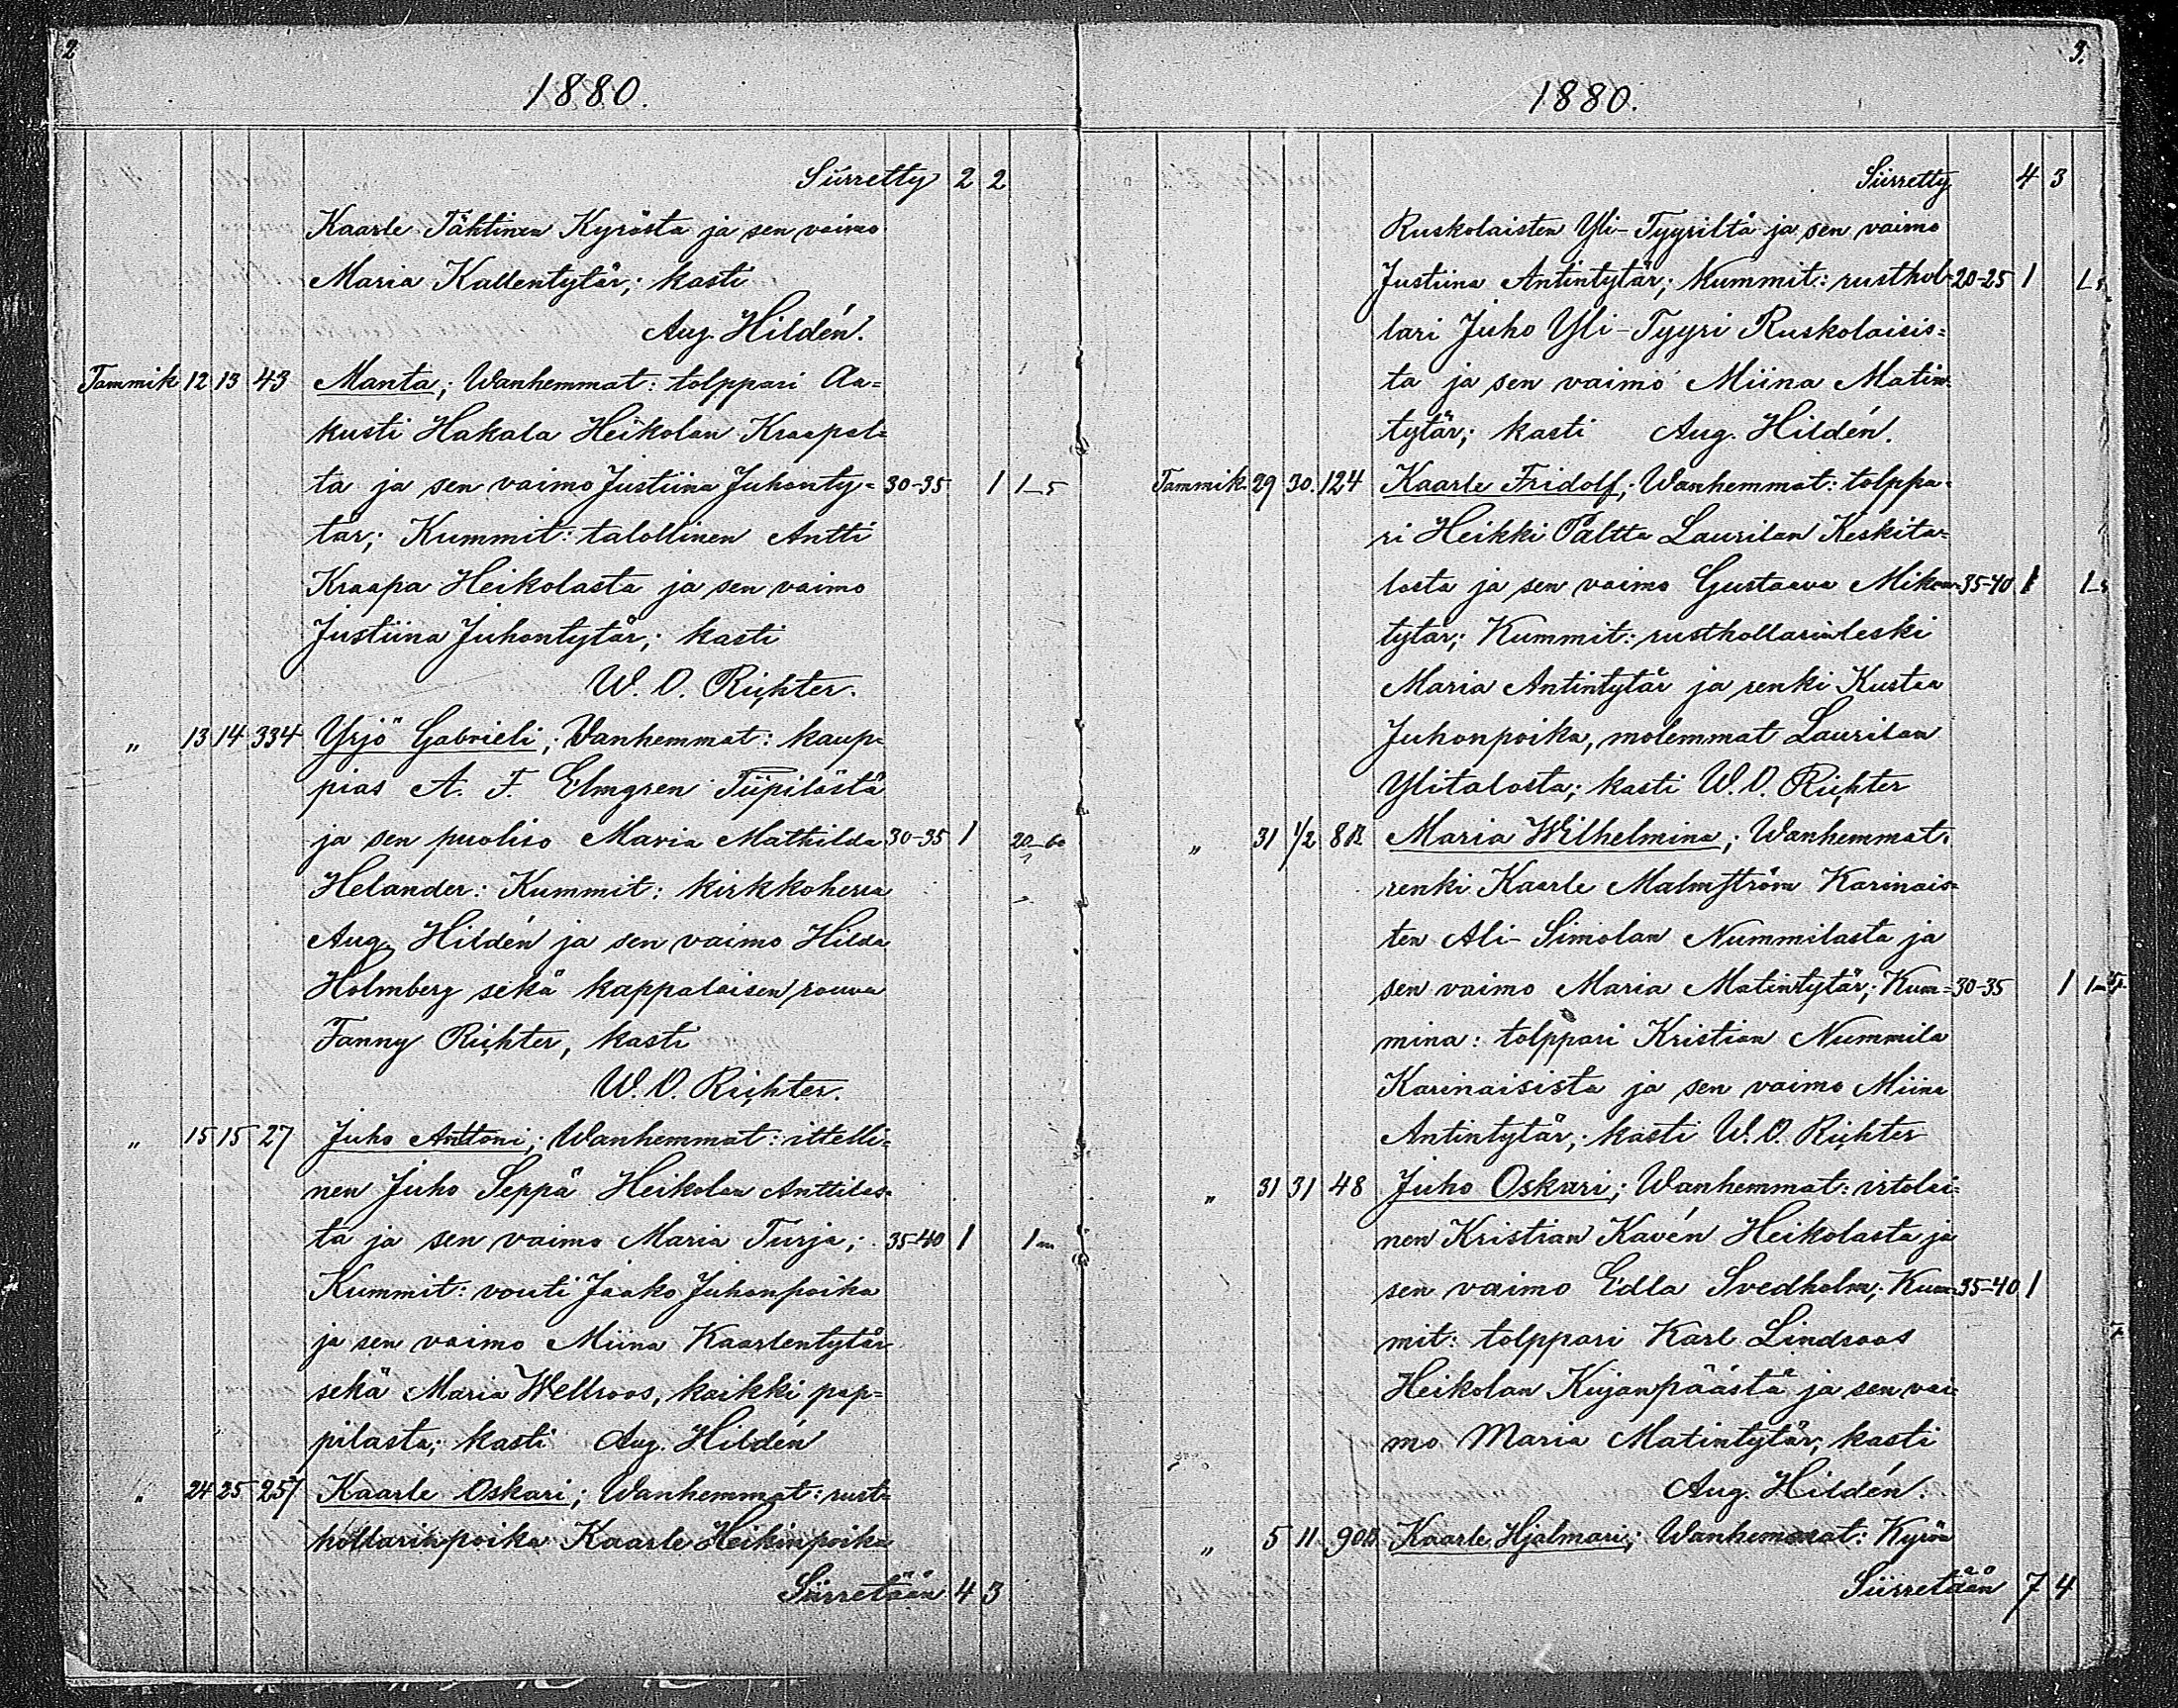 2
1880.
Siirretty 2 2
Kaarle Tähtinen Kyröstä ja sen vaimo
Maria Kallentytär; kasti
Aug. Hildén.
Tammik 12 13 43 Manta; Wanhemmat: tolppari Aa=
kusti Hakala Heikolan Kraapal=
ta ja sen vaimo Justiina Juhonty= 30-35 1 1-5
tär; Kummit: talollinen Antti
Kraapa Heikolasta ja sen vaimo
Justiina Juhontytär; kasti
W. O. Richter.
" 13 14 334 Yrjö Gabrieli; Wanhemmat: kaup=
pias A. F. Elmgren Tiipilästä
ja sen puoliso Maria Mathilda 30-35 1 20-60
Helander: Kummit: kirkkoherra
Aug. Hildén ja sen vaimo Hilda
Holmberg sekä kappalaisen rouva
Fanny Richter, kasti
W. O. Richter.
" 15 15 27 Juho Anttoni; Wanhemmat: ittelli=
nen Juho Seppä Heikolan Anttilas=
ta ja sen vaimo Maria Turja; 35-40 1 1
Kummit: vouti Jaako Juhonpoika
ja sen vaimo Miina Kaarlentytär
sekä Maria Wellroos, kaikki pap=
pilasta; kasti Aug. Hildén
" 24 25 257 Kaarle Oskari; Wanhemmat: rust=
hollarinpoika Kaarle Heikinpoika
Siirretään 4 3
3.
1880.
Siirretty 4 3
Ruskolaisten Yli-Tyyriltä ja sen vaimo
Justiina Antintytär; kummit: rusthol= 20-25 1
lari Juho Yli-Tyyri Ruskolaisis=
ta ja sen vaimo Miina Matin
tytär; kasti Aug. Hildén.
Tammik. 29 30. 124 Kaarle Fridolf; Wanhemmat: tolppa=
ri Heikki Paltta Laurilan Keskita=
losta ja sen vaimo Gustaava Mikon= 35-40 1
tytär; Kummit: rusthollarinleski
Maria Antintytär ja renki Kustaa
Juhonpoika, molemmat Laurilan
Ylitalosta; kasti W. O. Richter
" 31 1/2 Maria Wilhelmina; Wanhemmat:
renki Kaarle Malmström Karinais=
ten Ali-Simolan Nummilasta ja
sen vaimo Maria Matintytär; Kum= 30-35 1
mina: tolppari Kristian Nummila
Karinaisista ja sen vaimo Miina
Antintytär; kasti W. O. Richter
" 31 31 48 Juho Oskari; Wanhemmat: irtolai=
nen Kristian Kavén Heikolasta ja
sen vaimo Edla Svedholm; Kum= 35-40 1
mit: tolppari Karl Lindroos
Heikolan Kujanpäästä ja sen vai=
mo Maria Matintytär; kasti
Aug. Hildén.
" 5 11 Kaarle Hjalmari; Wanhemmat: Kyrön
Siirretään 7 4